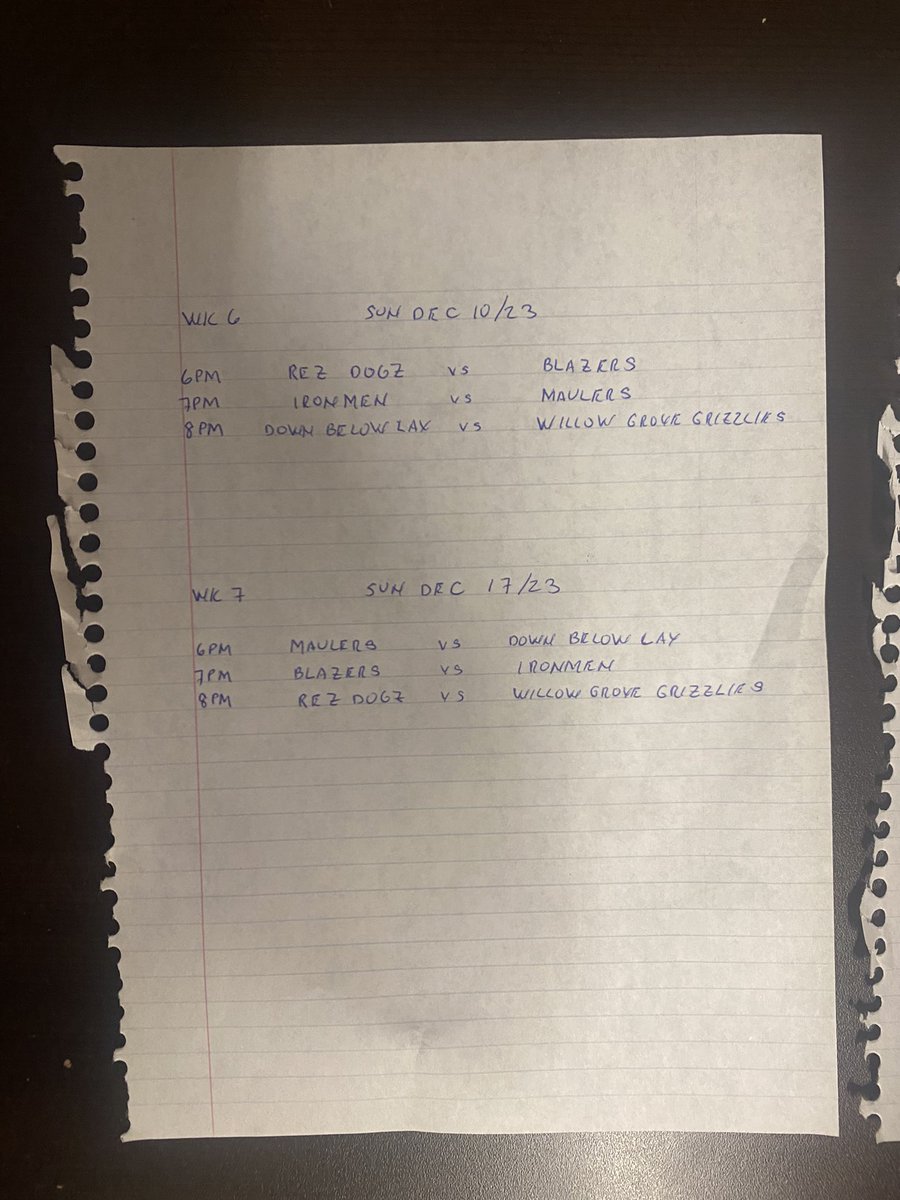 WK 6 SUN DEC 10/23
6PM REZ DOGZ VS BLAZERS
7PM IRONMEN VS MAULERS
8PM DOWN BELOW LAX VS WILLOW GROVE GRIZZLIES
WK 7 SUN DEC 17/23
6PM MAULERS VS DOWN BELOW LAX
7PM BLAZERS VS IRONMEN
8PM REZ DOGZ VS WILLOW GROVE GRIZZLIES